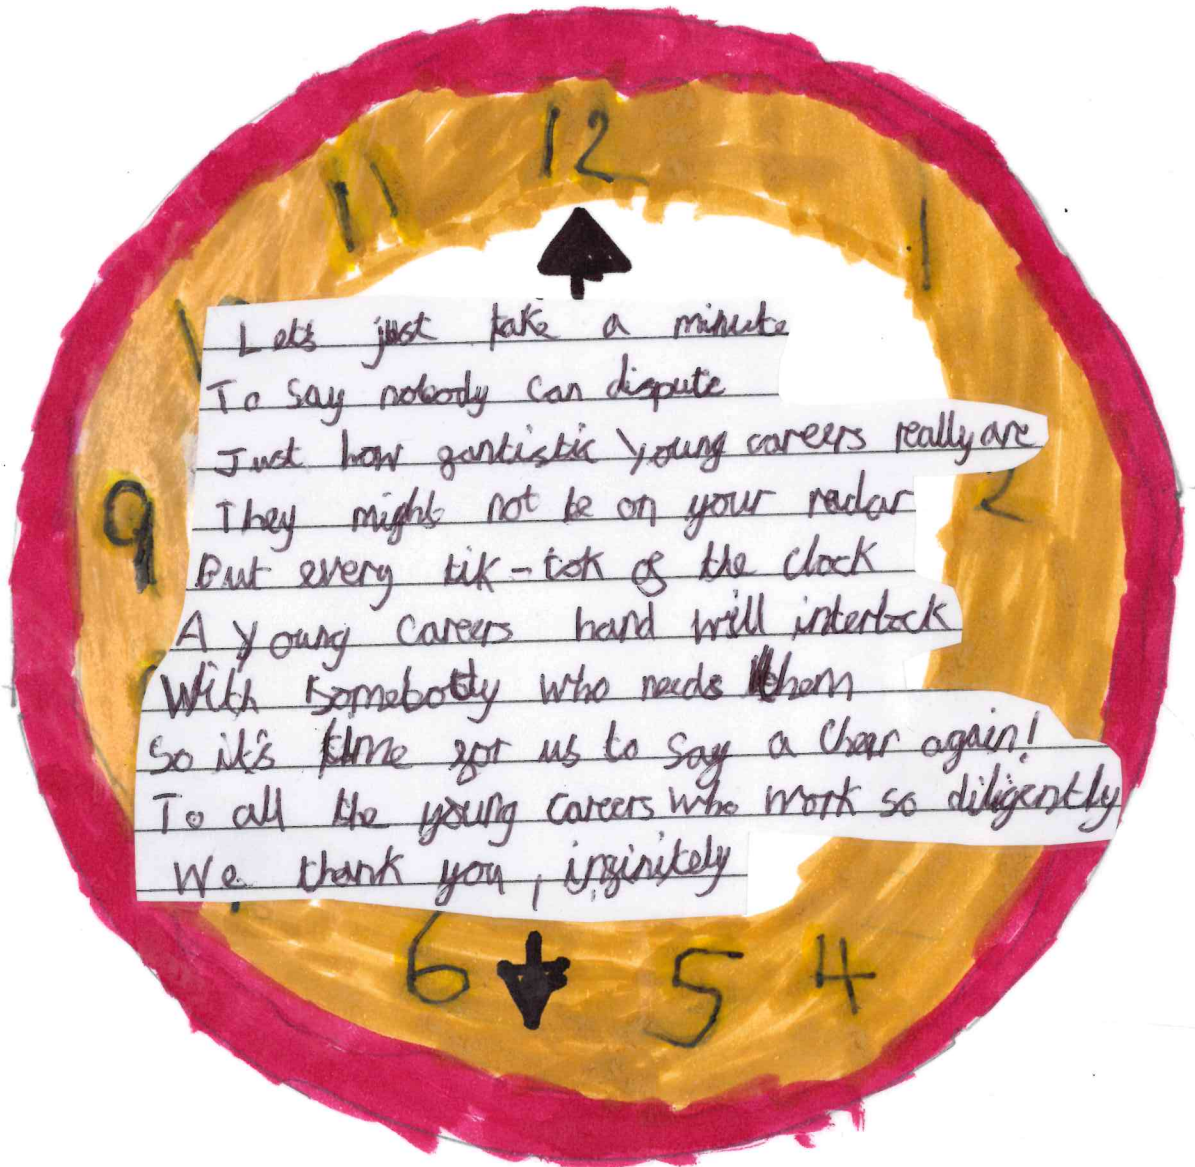 12
11
1
Lets just take a minute
To say nobody can dispute
Just how fantistic young careers really are
They might not be on your radar
2
9
But every tik-tok of the clock
A young careers hand will interlock
With somebody who needs them
So it's time for us to say a chear again!
To all the young careers who work so diligently
We thank you, infinitely
6
5
4